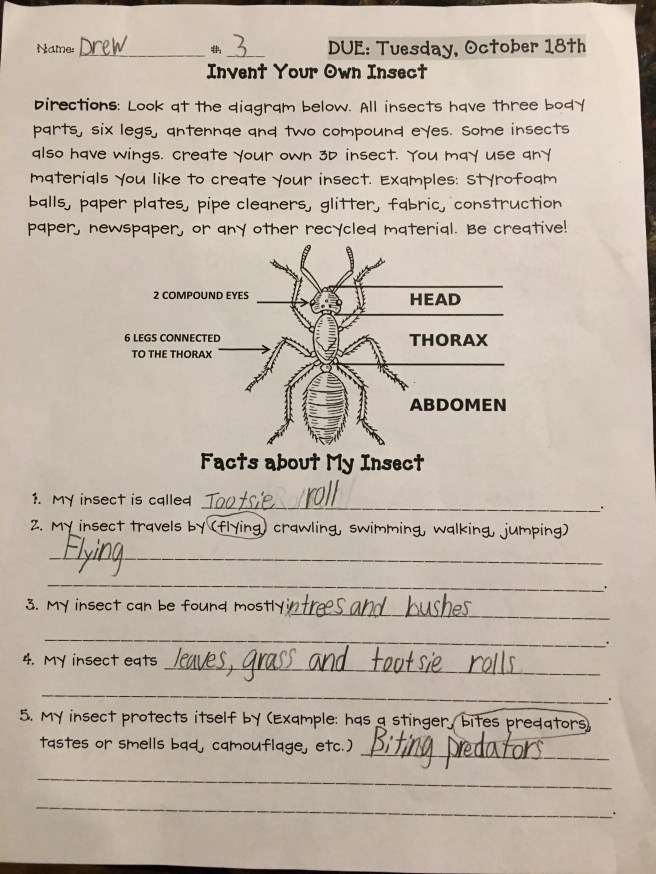 Name: Drew #: 3 DUE: Tuesday, October 18th
Invent Your Own Insect
Directions: Look at the diagram below. All insects have three body
parts, six legs, antennae and two compound eyes. Some insects
also have wings. Create your own 3D insect. You may use any
materials you like to create your insect. Examples: Styrofoam
balls, paper plates, pipe cleaners, glitter, fabric, construction
paper, newspaper, or any other recycled material. Be creative!
2 COMPOUND EYES
HEAD
6 LEGS CONNECTED
TO THE THORAX
THORAX
ABDOMEN
Facts about My Insect
1. My insect is called Tootsie roll.
2. My insect travels by (flying, crawling, swimming, walking, jumping)
Flying
.
3. My insect can be found mostly in trees and bushes
.
4. My insect eats leaves, grass and tootsie rolls
.
5. My insect protects itself by (Example: has a stinger, bites predators,
tastes or smells bad, camouflage, etc.) Biting predators
.